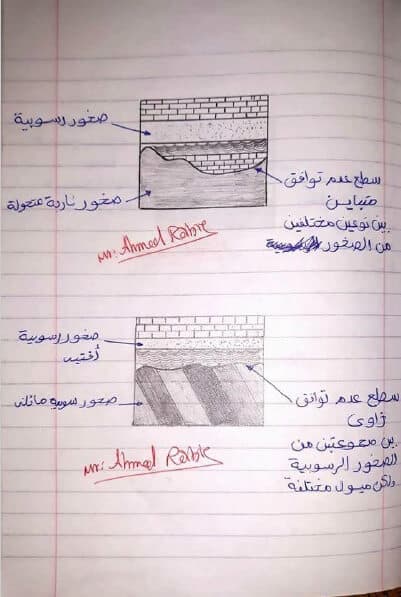 صخور رسوبية
سطح عدم توافق
متباين
بين نوعين مختلفين
من الصخور
صخور نارية متحولة
mr: Ahmed Rabie
صخور رسوبية
أفقية
سطح عدم توافق
زاوى
بين مجموعتين من
الصخور الرسوبية
ولكن ميول مختلفة
صخور رسوبية مائلة
mr: Ahmed Rabie